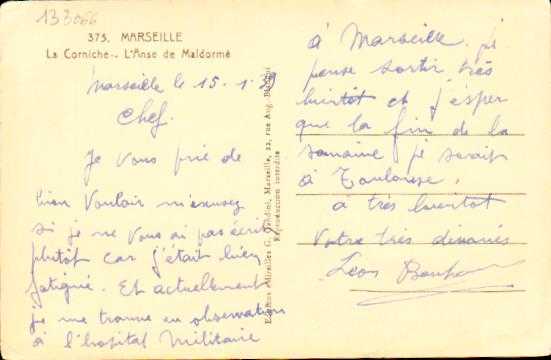 133066
373. MARSEILLE
La Corniche.- L'Anse de Maldormé
Marseille le 15.1.29
Chef.
Je vous prie de
bien vouloir m'excusez
si je ne vous ai pas écrit
plutôt car j'étais bien
fatigué. Et actuellement
je me trouve en observation
à l'hospital Militaire
Editions Mireilles G. Gandini, Marseille, 22, rue Aug.-Blanqui
Reproduction interdite
à Marseille. je
pense sortir très
bientôt et j'esper
que la fin de la
semaine je serait
à Toulouse.
à très bientot
Votre très dévoués
Léon